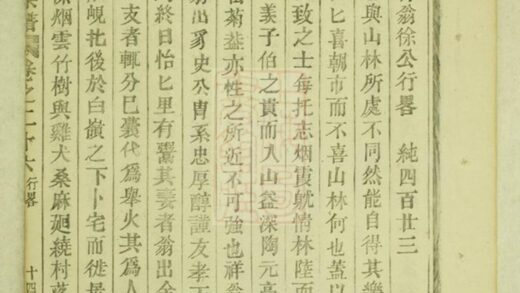 翁徐公行畧 純四百廿三
與山林所處不同然能自得其樂
匕喜朝市而不喜山林何也蓋以
致之士每托志烟霞躭情林陸而
羨子伯之貴而入山益深陶元亮
菊益亦性之所近不可強也祥翁
出豸史公胄系忠厚醇謹友孝
終日怡匕里有鬻其妻者翁出金
支者輒分已囊代爲舉火其爲人
峴北後於白嶺之下卜宅而徙居
烟雲竹樹與雞犬桑麻廻繞村落
譜 卷之二十六 行畧 十四